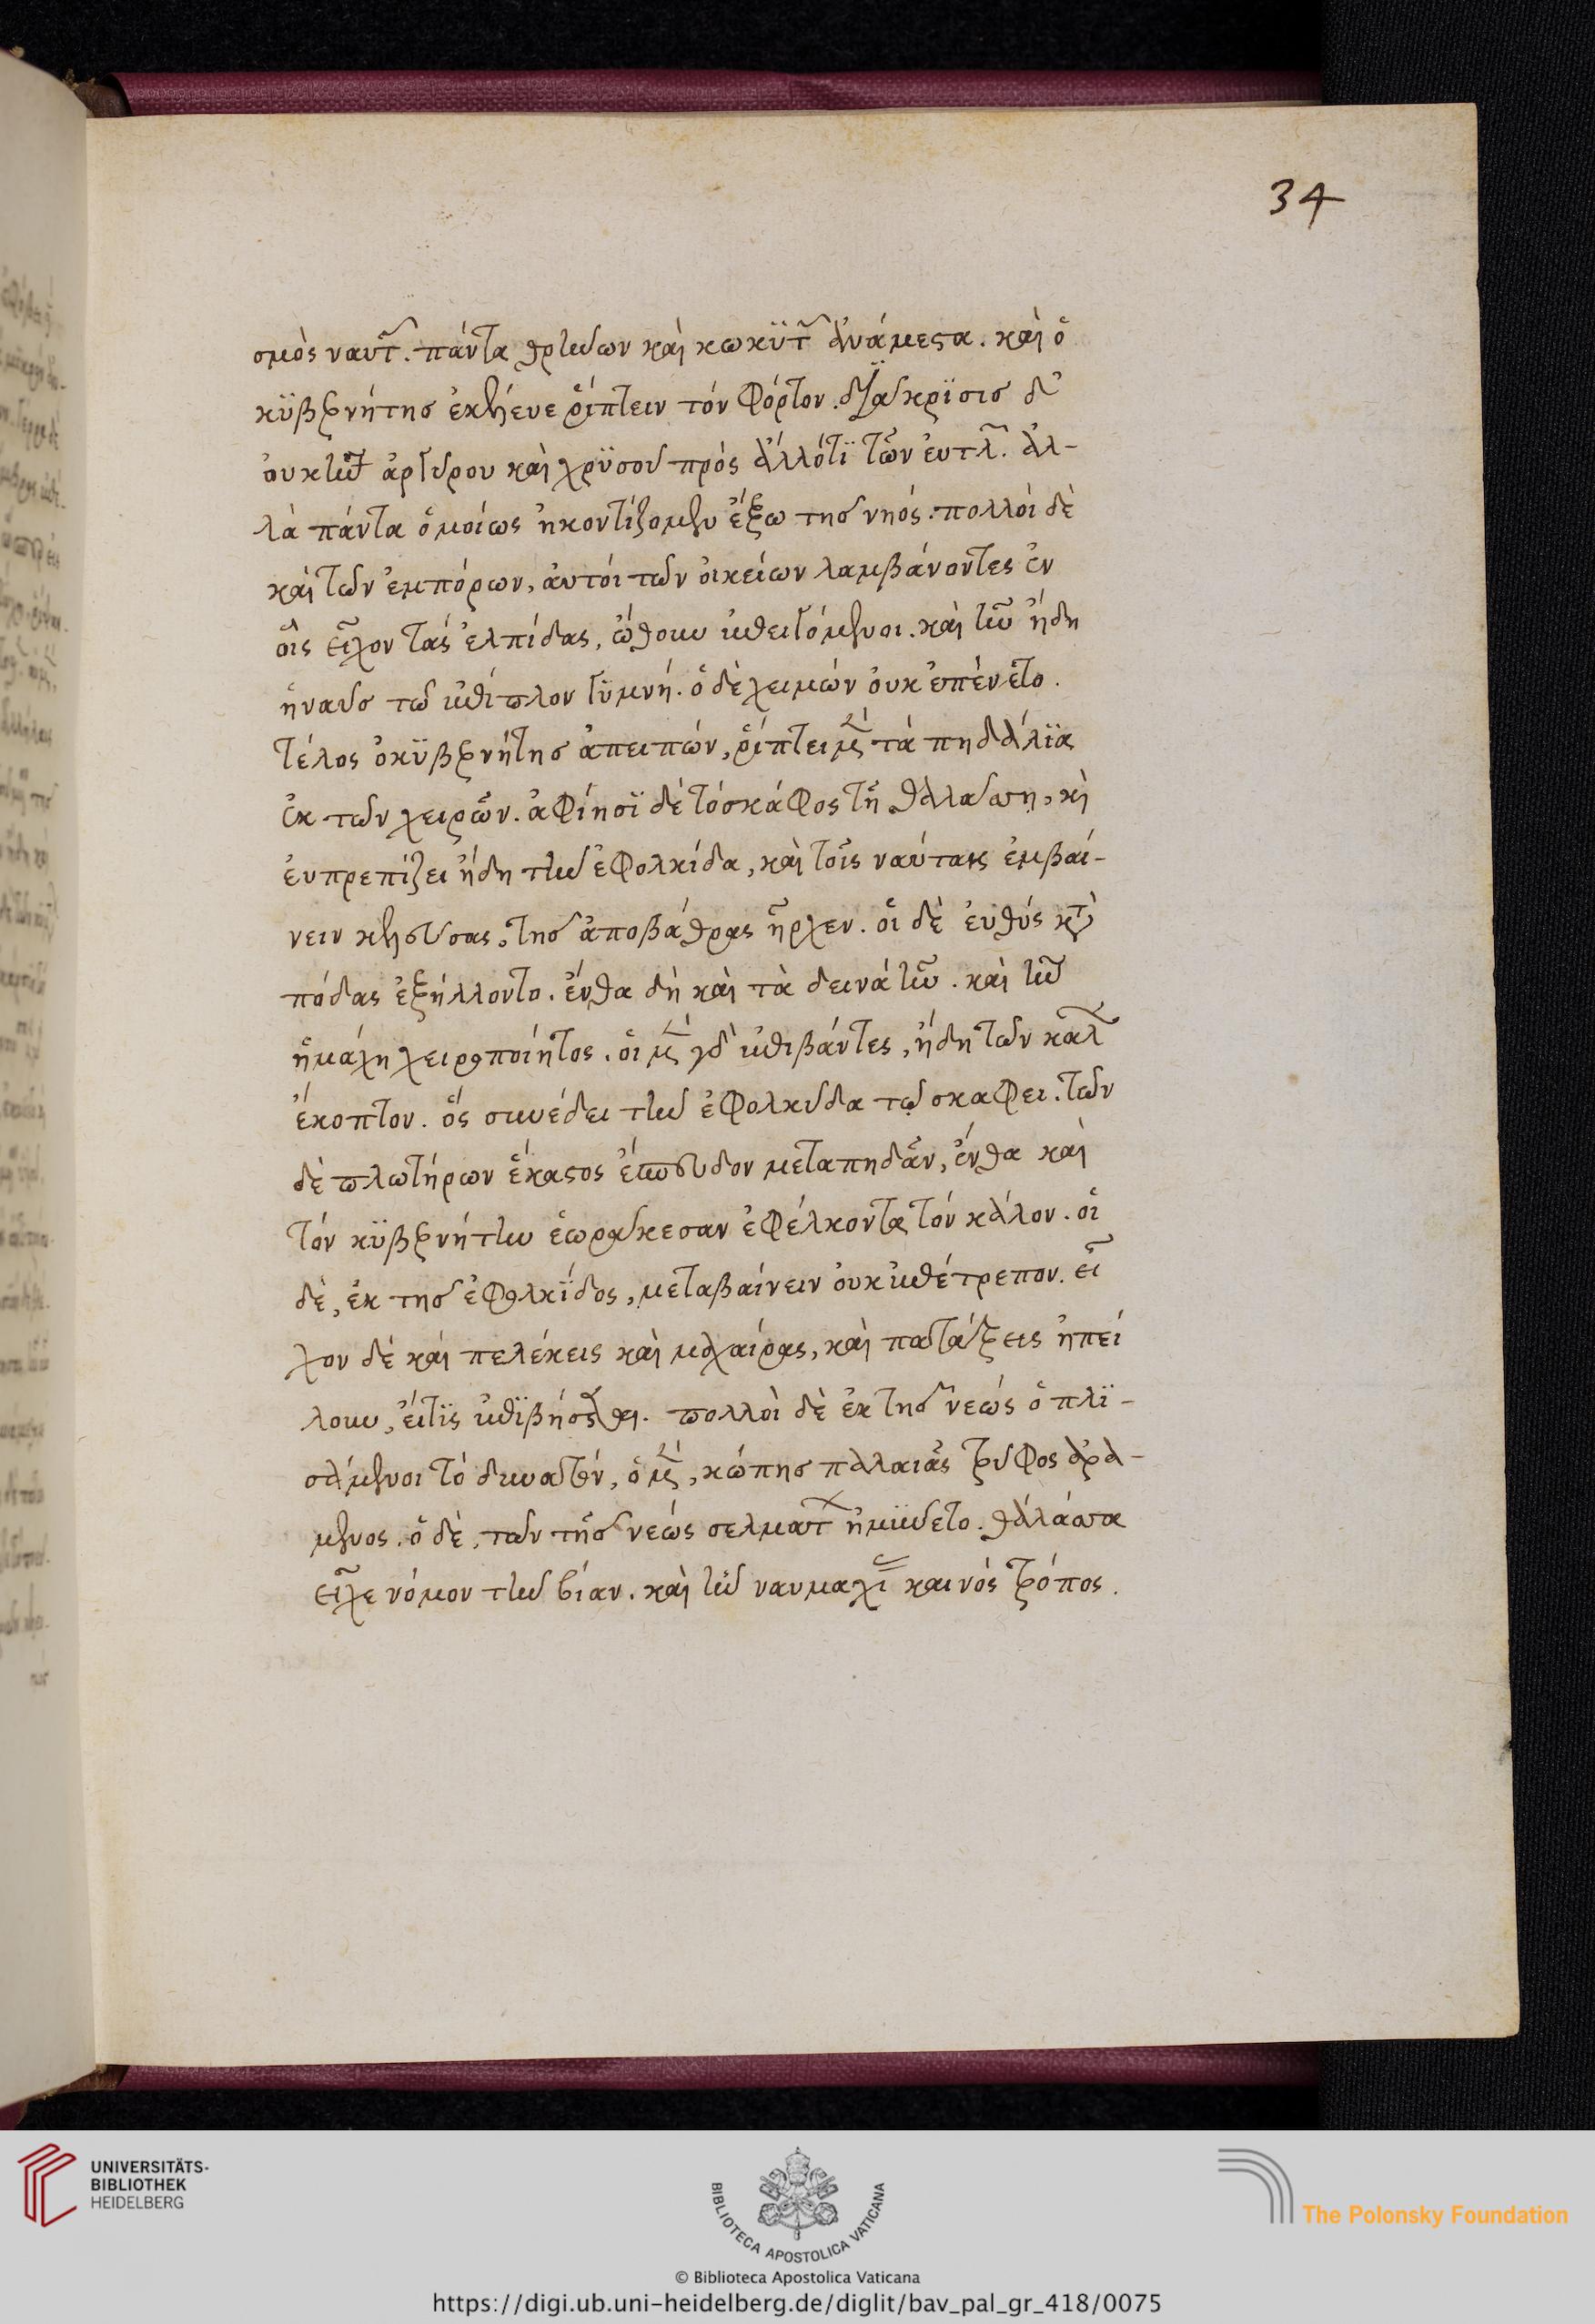 34
σμὸς ναυτῶν. πάντα θρήνων καὶ κωκϋτῶν ἀνάμεστα. καὶ ὁ
κϋβερνήτης ἐκέλευε ῥίπτειν τὸν φόρτον. διάκρϊσις δ'
οὐκ ἦν ἀργύρου καὶ χρϋσοῦ πρὸς ἄλλό τϊ τῶν εὐτελῶν. ἀλ-
λὰ πάντα ὁμοίως ἠκοντίζομεν ἔξω τῆς νηός. πολλοὶ δὲ
καὶ τῶν ἐμπόρων, αὐτοὶ τῶν οἰκείων λαμβάνοντες ἐν
οἷς εἶχον τὰς ἐλπίδας, ὤθουν ἐπειγόμενοι. καὶ ἦν ἤδη
ἡ ναῦς τῶ ἐπίπλον γϋμνή. ὁ δὲ χειμὼν οὐκ ἐσπένετο.
τέλος ὁ κϋβερνήτης ἀπειπών, ῥίπτει μὲν τὰ πηδάλϊα
ἐκ τῶν χειρῶν. ἀφίησϊ δὲ τὸ σκάφος τῆ θαλάσση, καὶ
εὐπρεπίζει ἤδη τὴν ἐφολκίδα, καὶ τοῖς ναύταις ἐμβαί-
νειν κελεύσας, τῆς ἀποβάθρας ἦρχεν. οἱ δὲ εὐθὺς κατὰ
πόδας ἐξήλλοντο. ἔνθα δὴ καὶ τὰ δεινὰ ἦν. καὶ ἦν
ἡ μάχη χειροποίητος. οἱ μὲν γὰρ ἐπιβάντες, ἤδη τῶν κάλων
ἔκοπτον. ὃς συνέδει τὴν ἐφολκύδα τῷ σκαφει. τῶν
δὲ πλωτήρων ἕκαστος ἔσπευδον μεταπηδᾶν, ἔνθα καὶ
τὸν κϋβερνήτην ἑωράκεσαν ἐφέλκοντα τὸν κάλον. οἱ
δὲ, ἐκ τῆς ἐφολκϊδος, μεταβαίνειν οὐκ ἐπέτρεπον. εἶ
χον δὲ καὶ πελέκεις καὶ μαχαίρας, καὶ πατάξεις ἠπεί
λουν, εἴ τϊς ἐπϊβήσεται. πολλοὶ δὲ ἐκ τῆς νεὼς ὁπλϊ-
σάμενοι τὸ δυνατὸν, ὁ μὲν, κώπης παλαιᾶς τρύφος ἀρά-
μενος. ὁ δὲ, τῶν τῆς νεὼς σελμάτων ἠμϋνετο. θάλάσσα
εἶχε νόμον τὴν βίαν. καὶ ἦν ναυμαχίας καινὸς τρόπος.
UNIVERSITÄTS-
BIBLIOTHEK
HEIDELBERG
BIBLIOTECA APOSTOLICA VATICANA
The Polonsky Foundation
© Biblioteca Apostolica Vaticana
https://digi.ub.uni-heidelberg.de/diglit/bav_pal_gr_418/0075